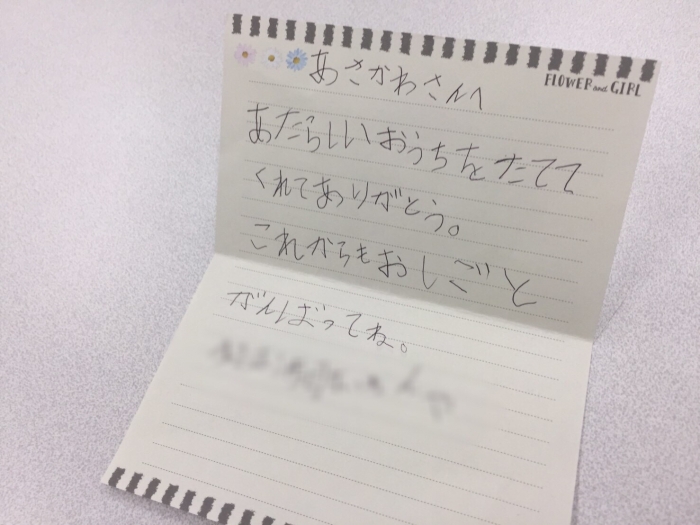 FLOWER and GIRL
あさかわさんへ
あたらしいおうちをたてて
くれてありがとう。
これからもおしごと
がんばってね。